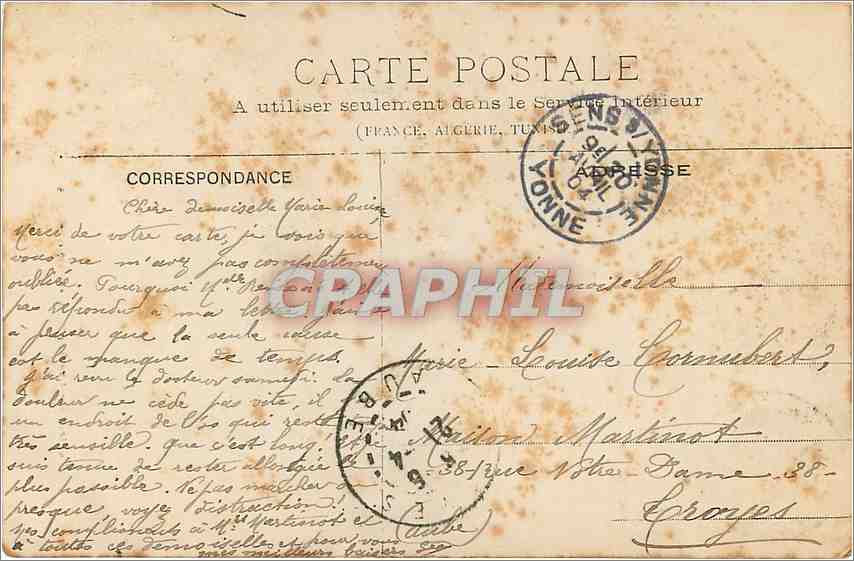 CARTE POSTALE
A utiliser seulement dans le Service Intérieur
(FRANCE, ALGÉRIE, TUNISIE)
CORRESPONDANCE
ADRESSE
SENS S/YONNE
9E 20
AVRIL
04
YONNE
Chère demoiselle Marie Louise
Merci de votre carte, je vois que
vous ne m'avez pas complètement
oubliée. Pourquoi Melle
pas répondu à ma lettre
à penser que la seule cause
est le manque de temps.
J'ai revu le docteur samedi. La
douleur ne cède pas vite, il
un endroit de l'os qui reste
très sensible, que c'est long! Et
suis tenue de rester allongée le
plus possible. Ne pas marcher
presque, voyez distraction!
Mes compliments à Mme Martinot et
à toutes ces demoiselles et pour vous
mes meilleurs baisers
CPAPHIL
Mademoiselle
Marie-Louise Cornubert,
Maison Martinot
38-rue Notre-Dame-38-
Troyes
(Aube)
AUBE